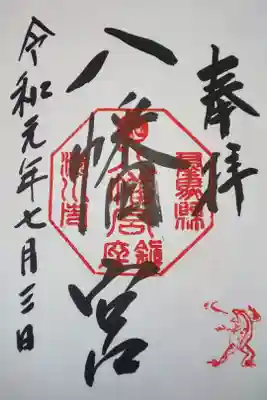 奉拝
八幡宮
令和元年七月三日
群馬縣